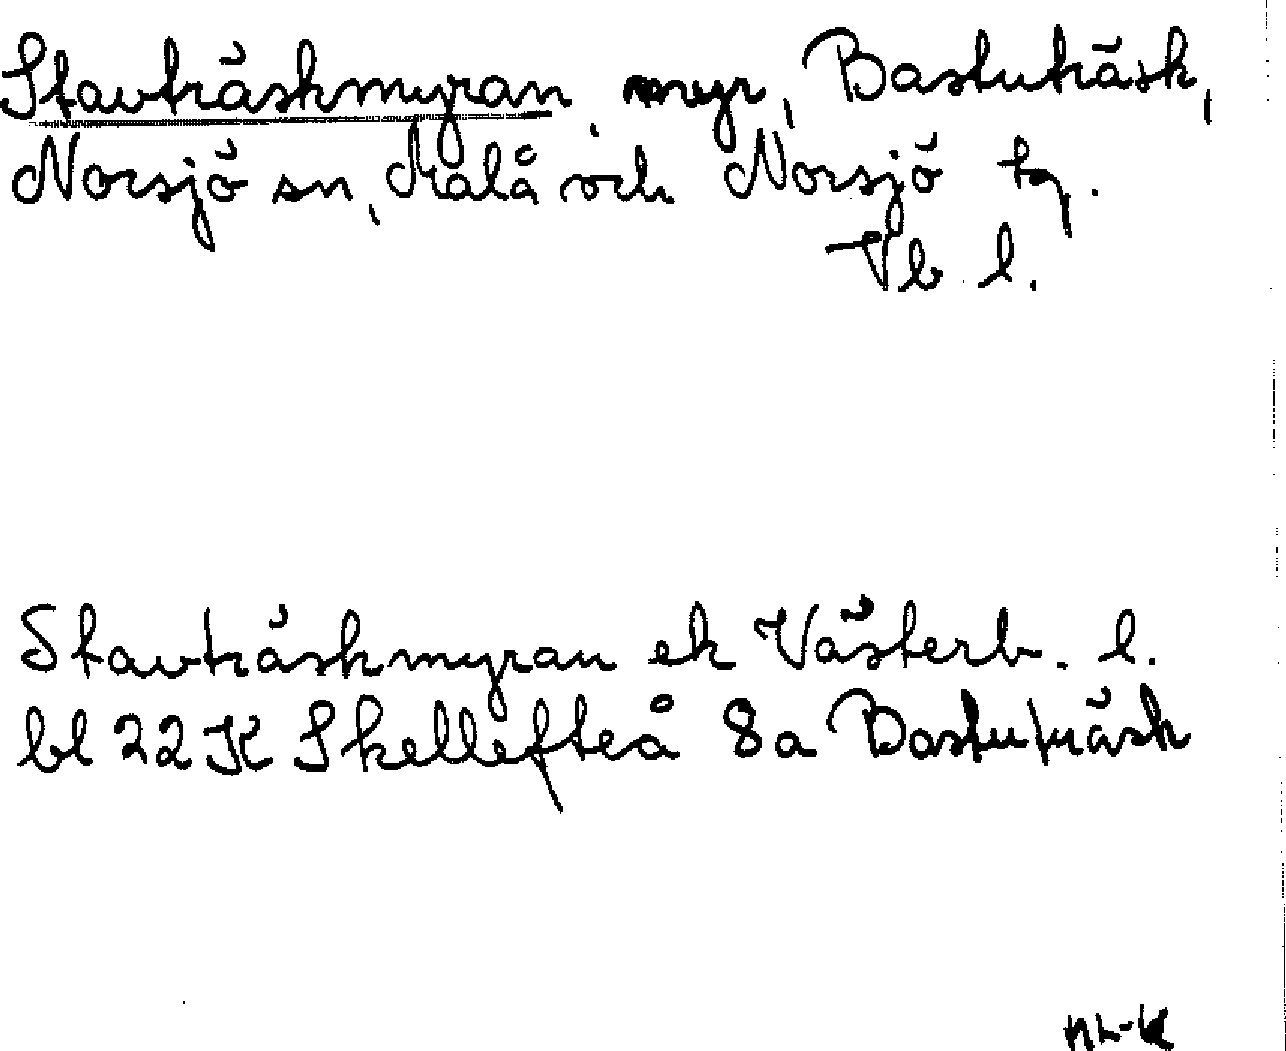 Stavträskmyran, myr, Bastuträsk,
Norsjö sn, Malå och Norsjö tg.
Vb l.
Stavträskmyran ek Västerb. l.
bl 22K Skellefteå 8a Bastuträsk